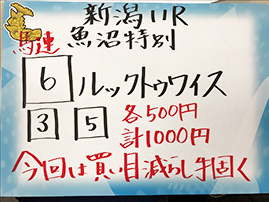 新潟11R
馬連 魚沼特別
6 ルックトゥワイス
3 5 各500円
計1000円
今回は買い目減らし手固く